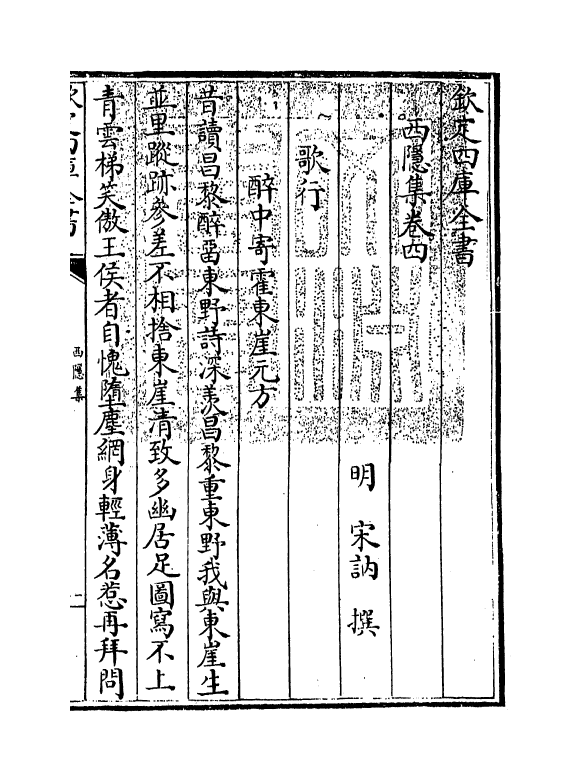 欽定四庫全書
西隱集卷四
明　宋訥　撰
歌行
醉中寄霍東崖元方
昔讀昌黎醉留東野詩深羡昌黎重東野我與東崖生
並里蹤跡參差不相捨東崖清致多幽居足圖寫不上
青雲梯笑傲王侯者自愧墮塵網身輕薄名惹再拜問
西隱集